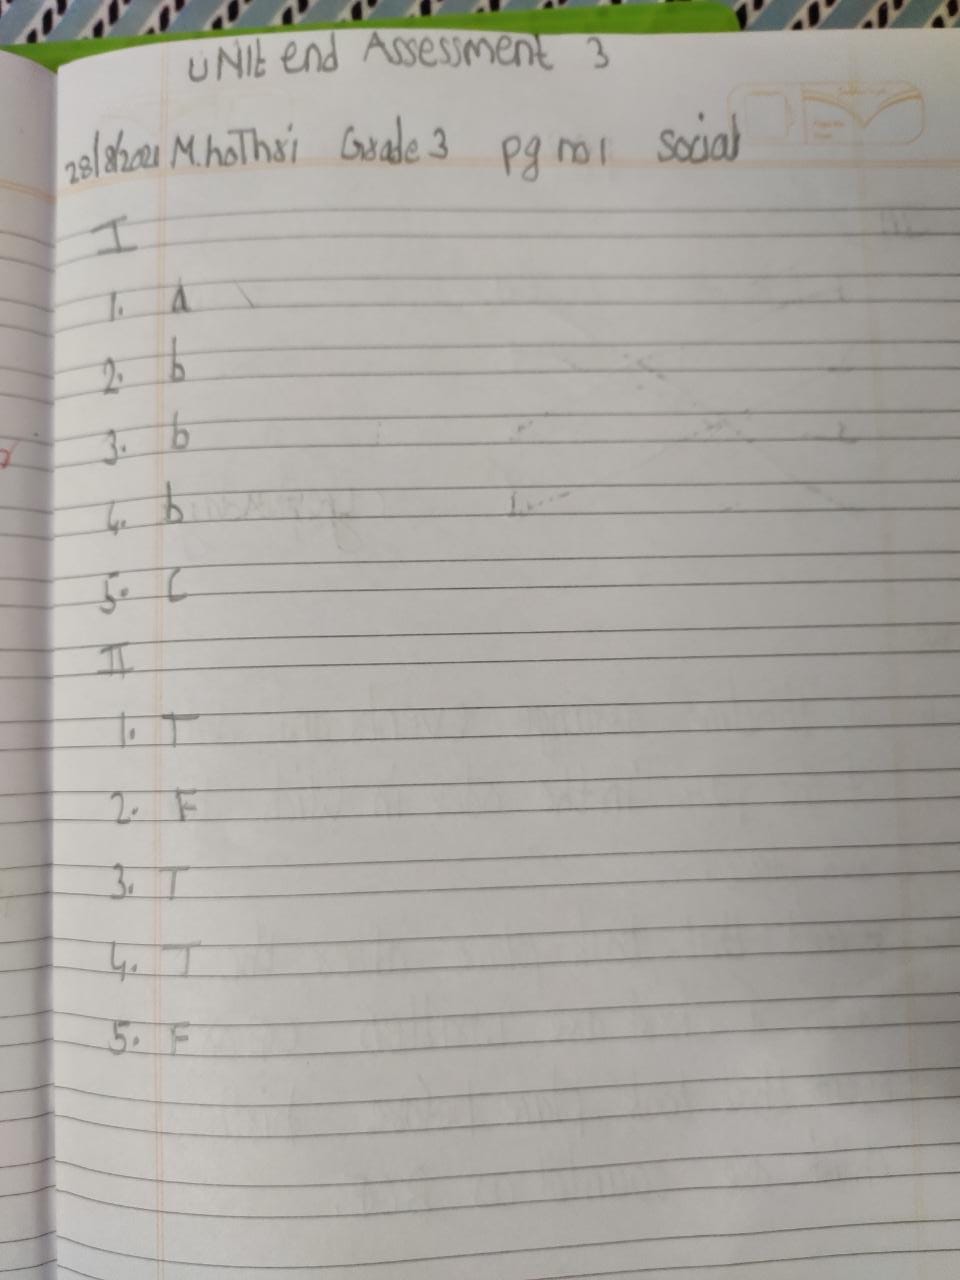 UNIt end Assessment 3
28/8/2021 M.hoThri Grade 3 pg no 1 social
I
1. a
2. b
3. b
4. b
5. C
II
1. T
2. F
3. T
4. T
5. F